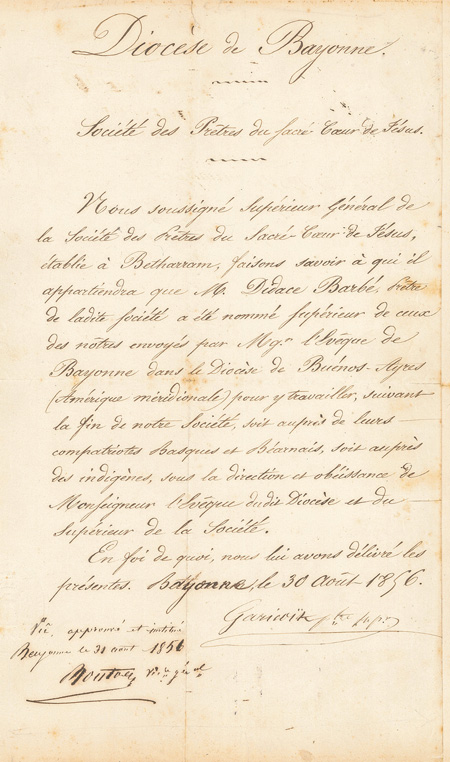 Diocèse de Bayonne.
Société des Prêtres du Sacré Cœur de Jésus.
Nous soussigné Supérieur Général de
la Société des Prêtres du Sacré-Cœur de Jésus,
établie à Betharram, faisons savoir à qui il
appartiendra que M. Didace Barbé, Prêtre
de ladite Société a été nommé supérieur de ceux
des nôtres envoyés par Mgr l'Evêque de
Bayonne dans le Diocèse de Buénos-Ayres
(Amérique méridionale) pour y travailler, suivant
la fin de notre Société, soit auprès de leurs
compatriotes Basques et Béarnais, soit auprès
des indigènes, sous la direction et obéissance de
Monseigneur l'Evêque dudit Diocèse et du
Supérieur de la Société.
En foi de quoi, nous lui avons délivré les
présentes. Bayonne, le 30 Août 1856.
Garicoits ptre supr
Vu, approuvé et
Bayonne le 31 août 1856